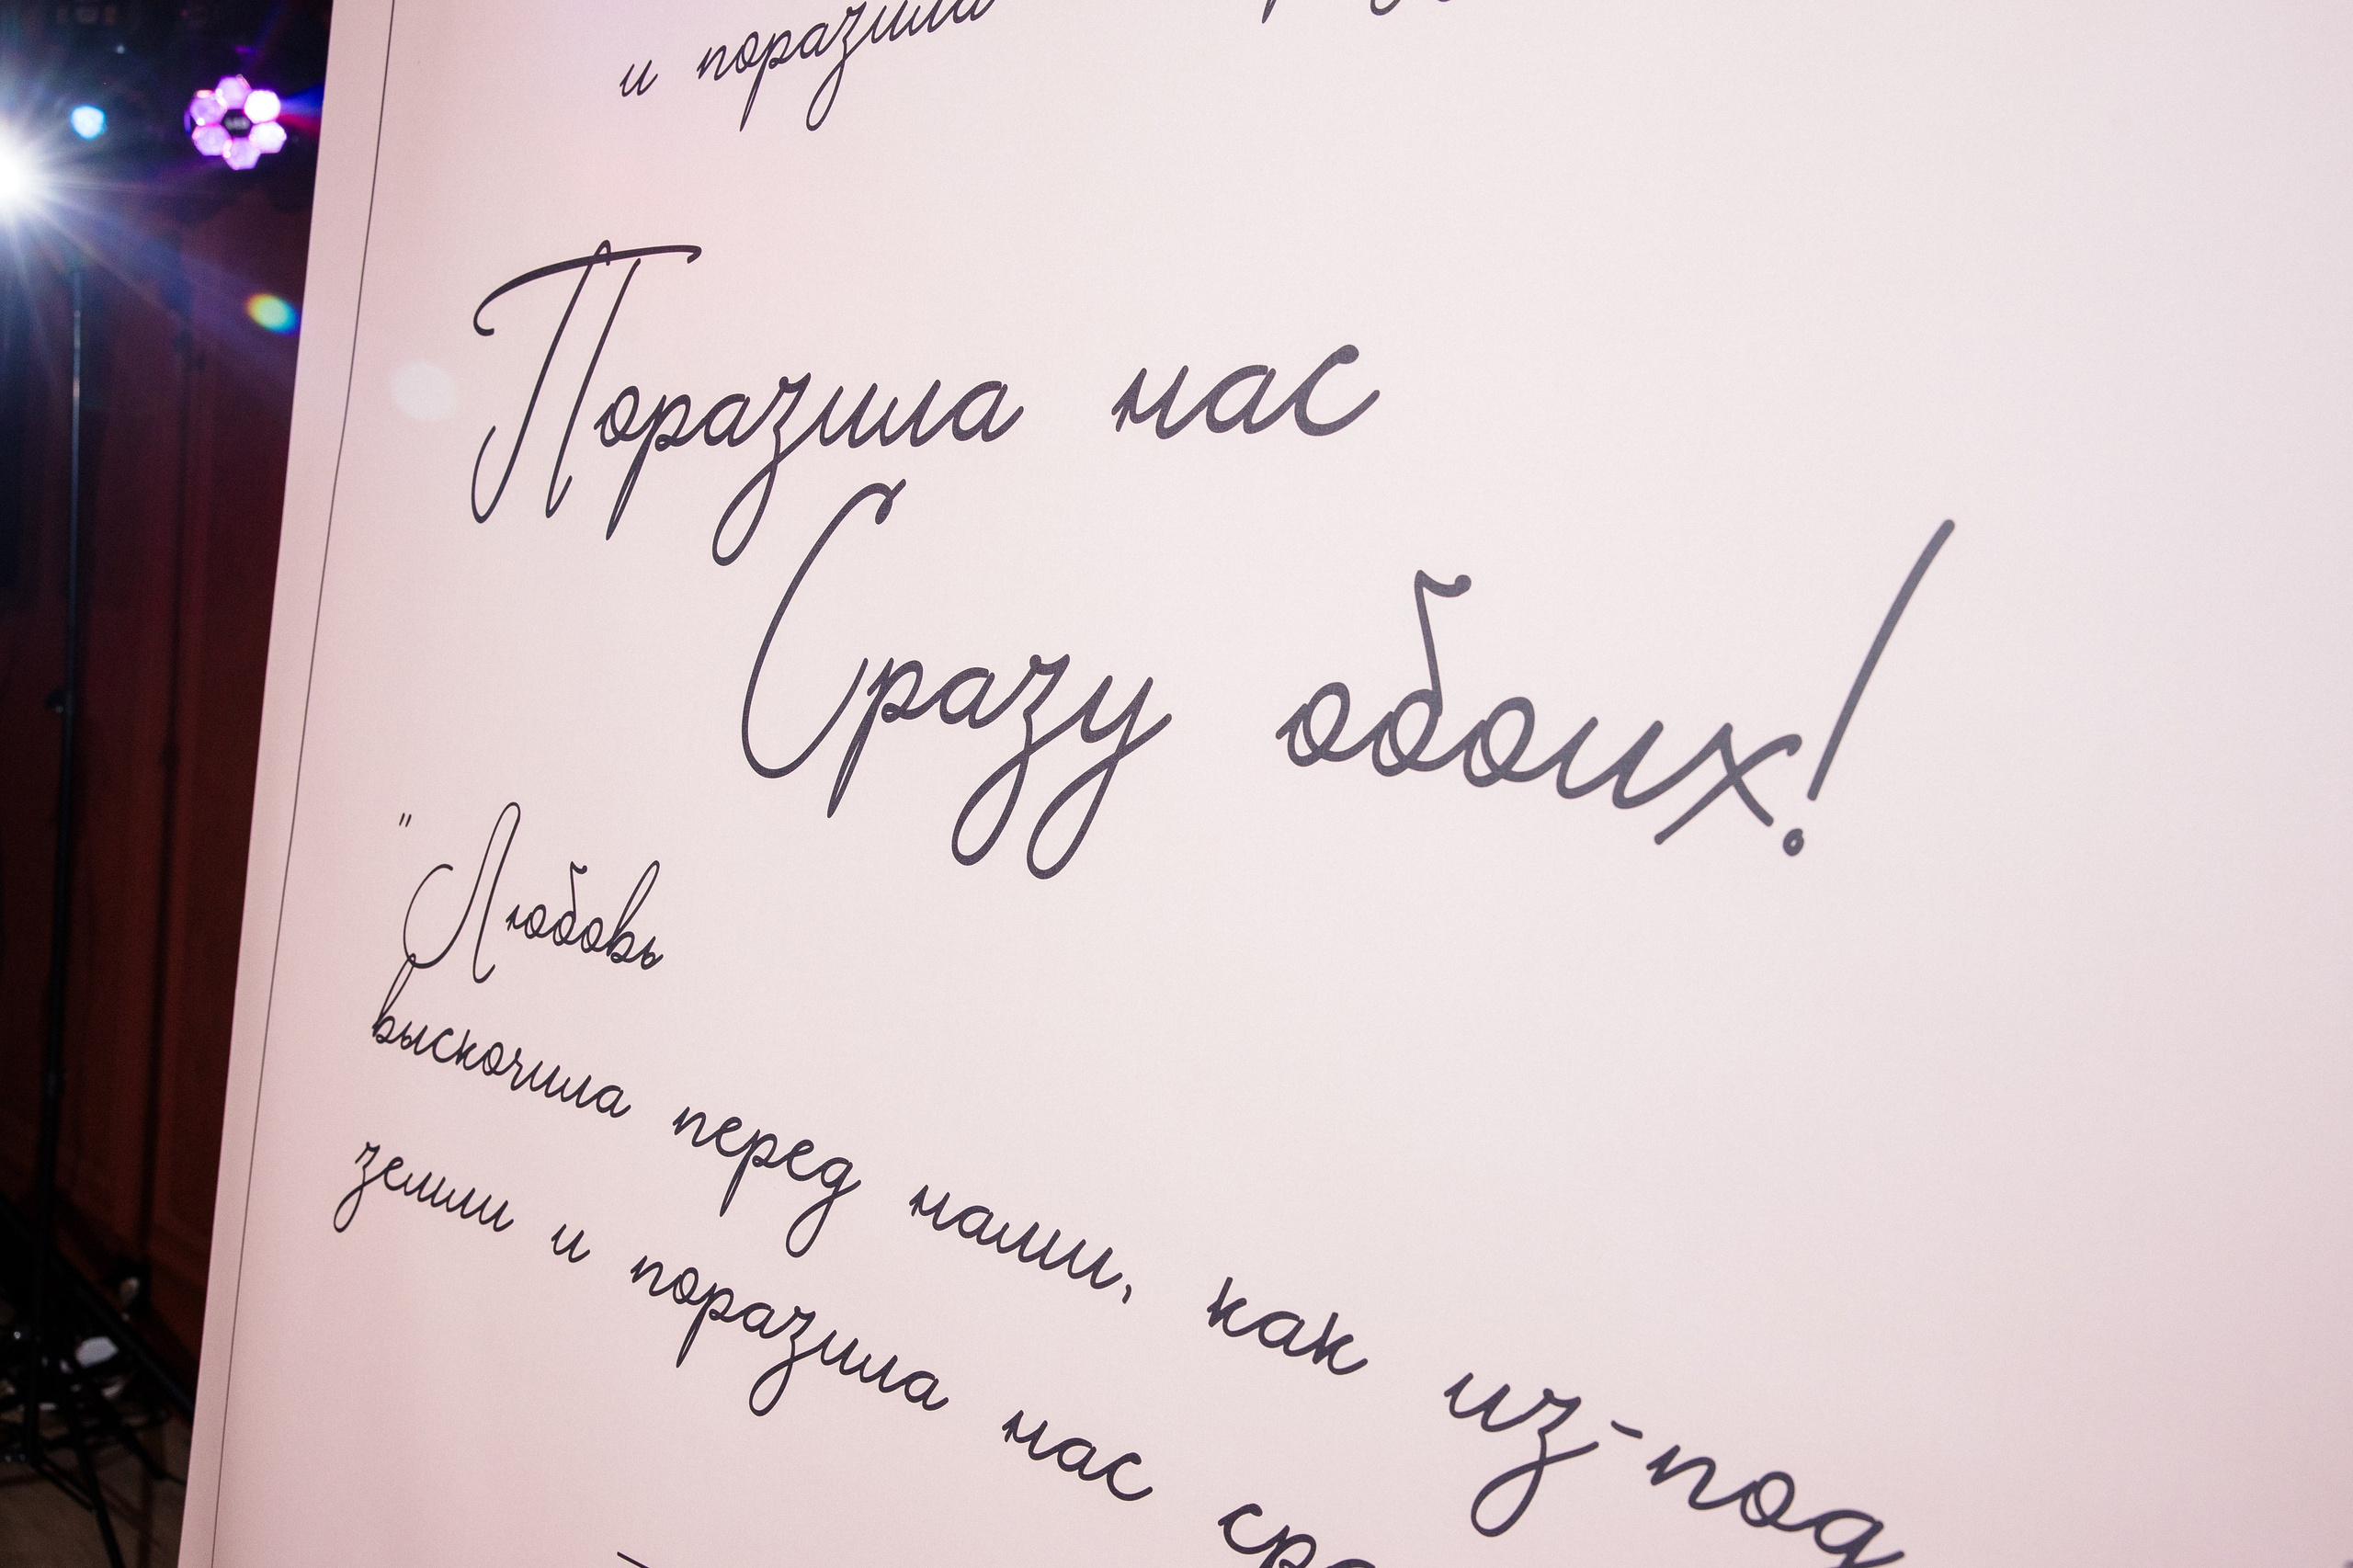 и поразила
Поразила нас
Сразу обоих!
"Любовь
выскочила перед нами, как из-под
земли и поразила нас